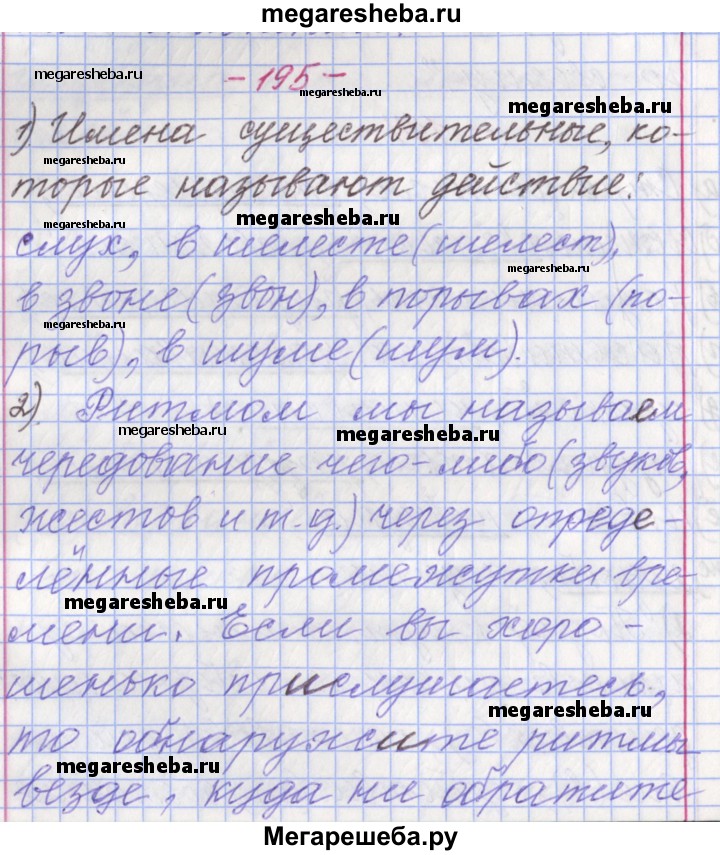 megaresheba.ru
megaresheba.ru
- 195 -
megaresheba.ru
megaresheba.ru
1) Имена существительные, ко-
megaresheba.ru
торые называют действие:
megaresheba.ru
слух, в шелесте (шелест),
megaresheba.ru
в звоне (звон), в порывах (по-
megaresheba.ru
рыв), в шуме (шум).
2). Ритмом мы называем
megaresheba.ru
megaresheba.ru
чередование чего-либо (звуков,
жестов и т.д.) через опреде-
лённые промежутки вре-
megaresheba.ru
мени. Если вы хоро-
шенько прислушаетесь,
megaresheba.ru
то обнаружите ритмы
megaresheba.ru
везде, куда ни обратите
Мегарешеба.ру